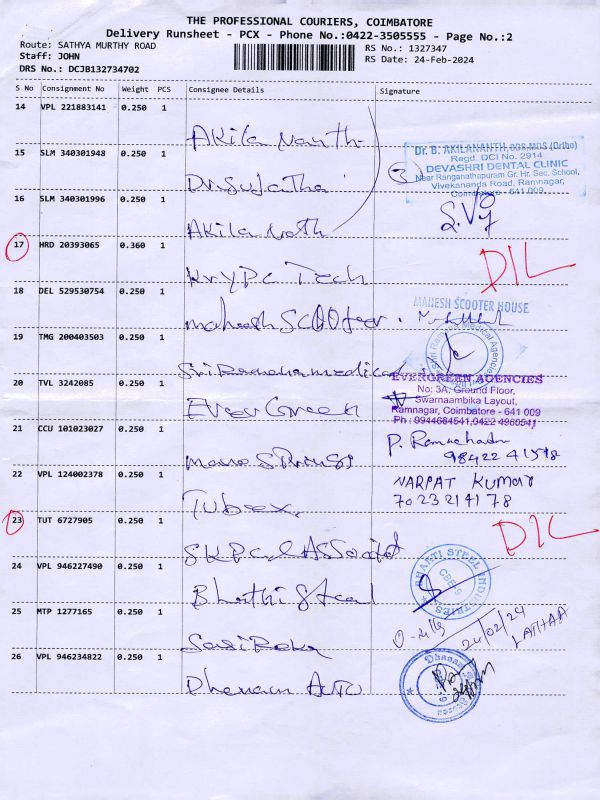 THE PROFESSIONAL COURIERS, COIMBATORE
Delivery Runsheet - PCX - Phone No.:0422-3505555 - Page No.:2
Route: SATHYA MURTHY ROAD
RS No.: 1327347
Staff: JOHN
RS Date: 24-Feb-2024
DRS No.: DCJB132734702
S No Consignment No Weight PCS Consignee Details Signature
14 VPL 221883141 0.250 1
Akila Nanth
Dr. B. AKILANANTH, BDS MDS (Ortho)
Regd. DCI No. 2914
DEVASHRI DENTAL CLINIC
Near Ranganathapuram Gr. Hr. Sec. School,
Vivekananda Road, Ramnagar,
Coimbatore - 641 009.
15 SLM 340301948 0.250 1
Dr. Sujatha
3
16 SLM 340301996 0.250 1
Akila Nath
17 HRD 20393065 0.360 1
Krypc Tech
D/L
18 DEL 529530754 0.250 1
Mahesh Scooter
MAHESH SCOOTER HOUSE
19 TMG 200403503 0.250 1
Sri Ramana medical
20 TVL 3242085 0.250 1
Ever Green
EVERGREEN AGENCIES
No: 3A, Ground Floor,
Swarnaambika Layout,
Ramnagar, Coimbatore - 641 009
Ph : 9944664541, 0422 4960541
21 CCU 101023027 0.250 1
P. Ramachadn
22 VPL 124002378 0.250 1
Tubex
NARPAT KUMAR
7023214178
23 TUT 6727905 0.250 1
SKP and Associat
D/L
24 VPL 946227490 0.250 1
Bhathi Steel
BHARTI STEEL INDUSTRIES
25 MTP 1277165 0.250 1
Sasi Reka
24/02/24
LATHAA
26 VPL 946234822 0.250 1
Dhanam Auto